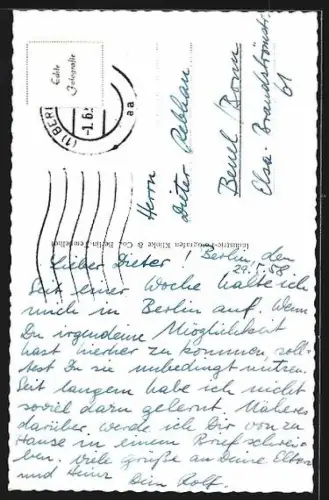 Echte
Fotografie
(1) BERL
-1.6.5
aa
Herrn
Dieter Rebhan
Beuel / Bonn
Elsa-Brandströmstr.
61
Industrie-Fotografen Klinke & Co., Berlin-Tempelhof
Lieber Dieter! Berlin, den
29.5.58
Seit einer Woche halte ich
mich in Berlin auf. Wenn
Du irgendeine Möglichkeit
hast hierher zu kommen, soll-
test Du sie unbedingt nutzen.
Seit langem habe ich nicht
soviel dazu gelernt. Näheres
darüber werde ich Dir von zu
Hause in einem Brief schrei-
ben. Viele Grüße an Deine Eltern
und Heinz Dein Rolf.